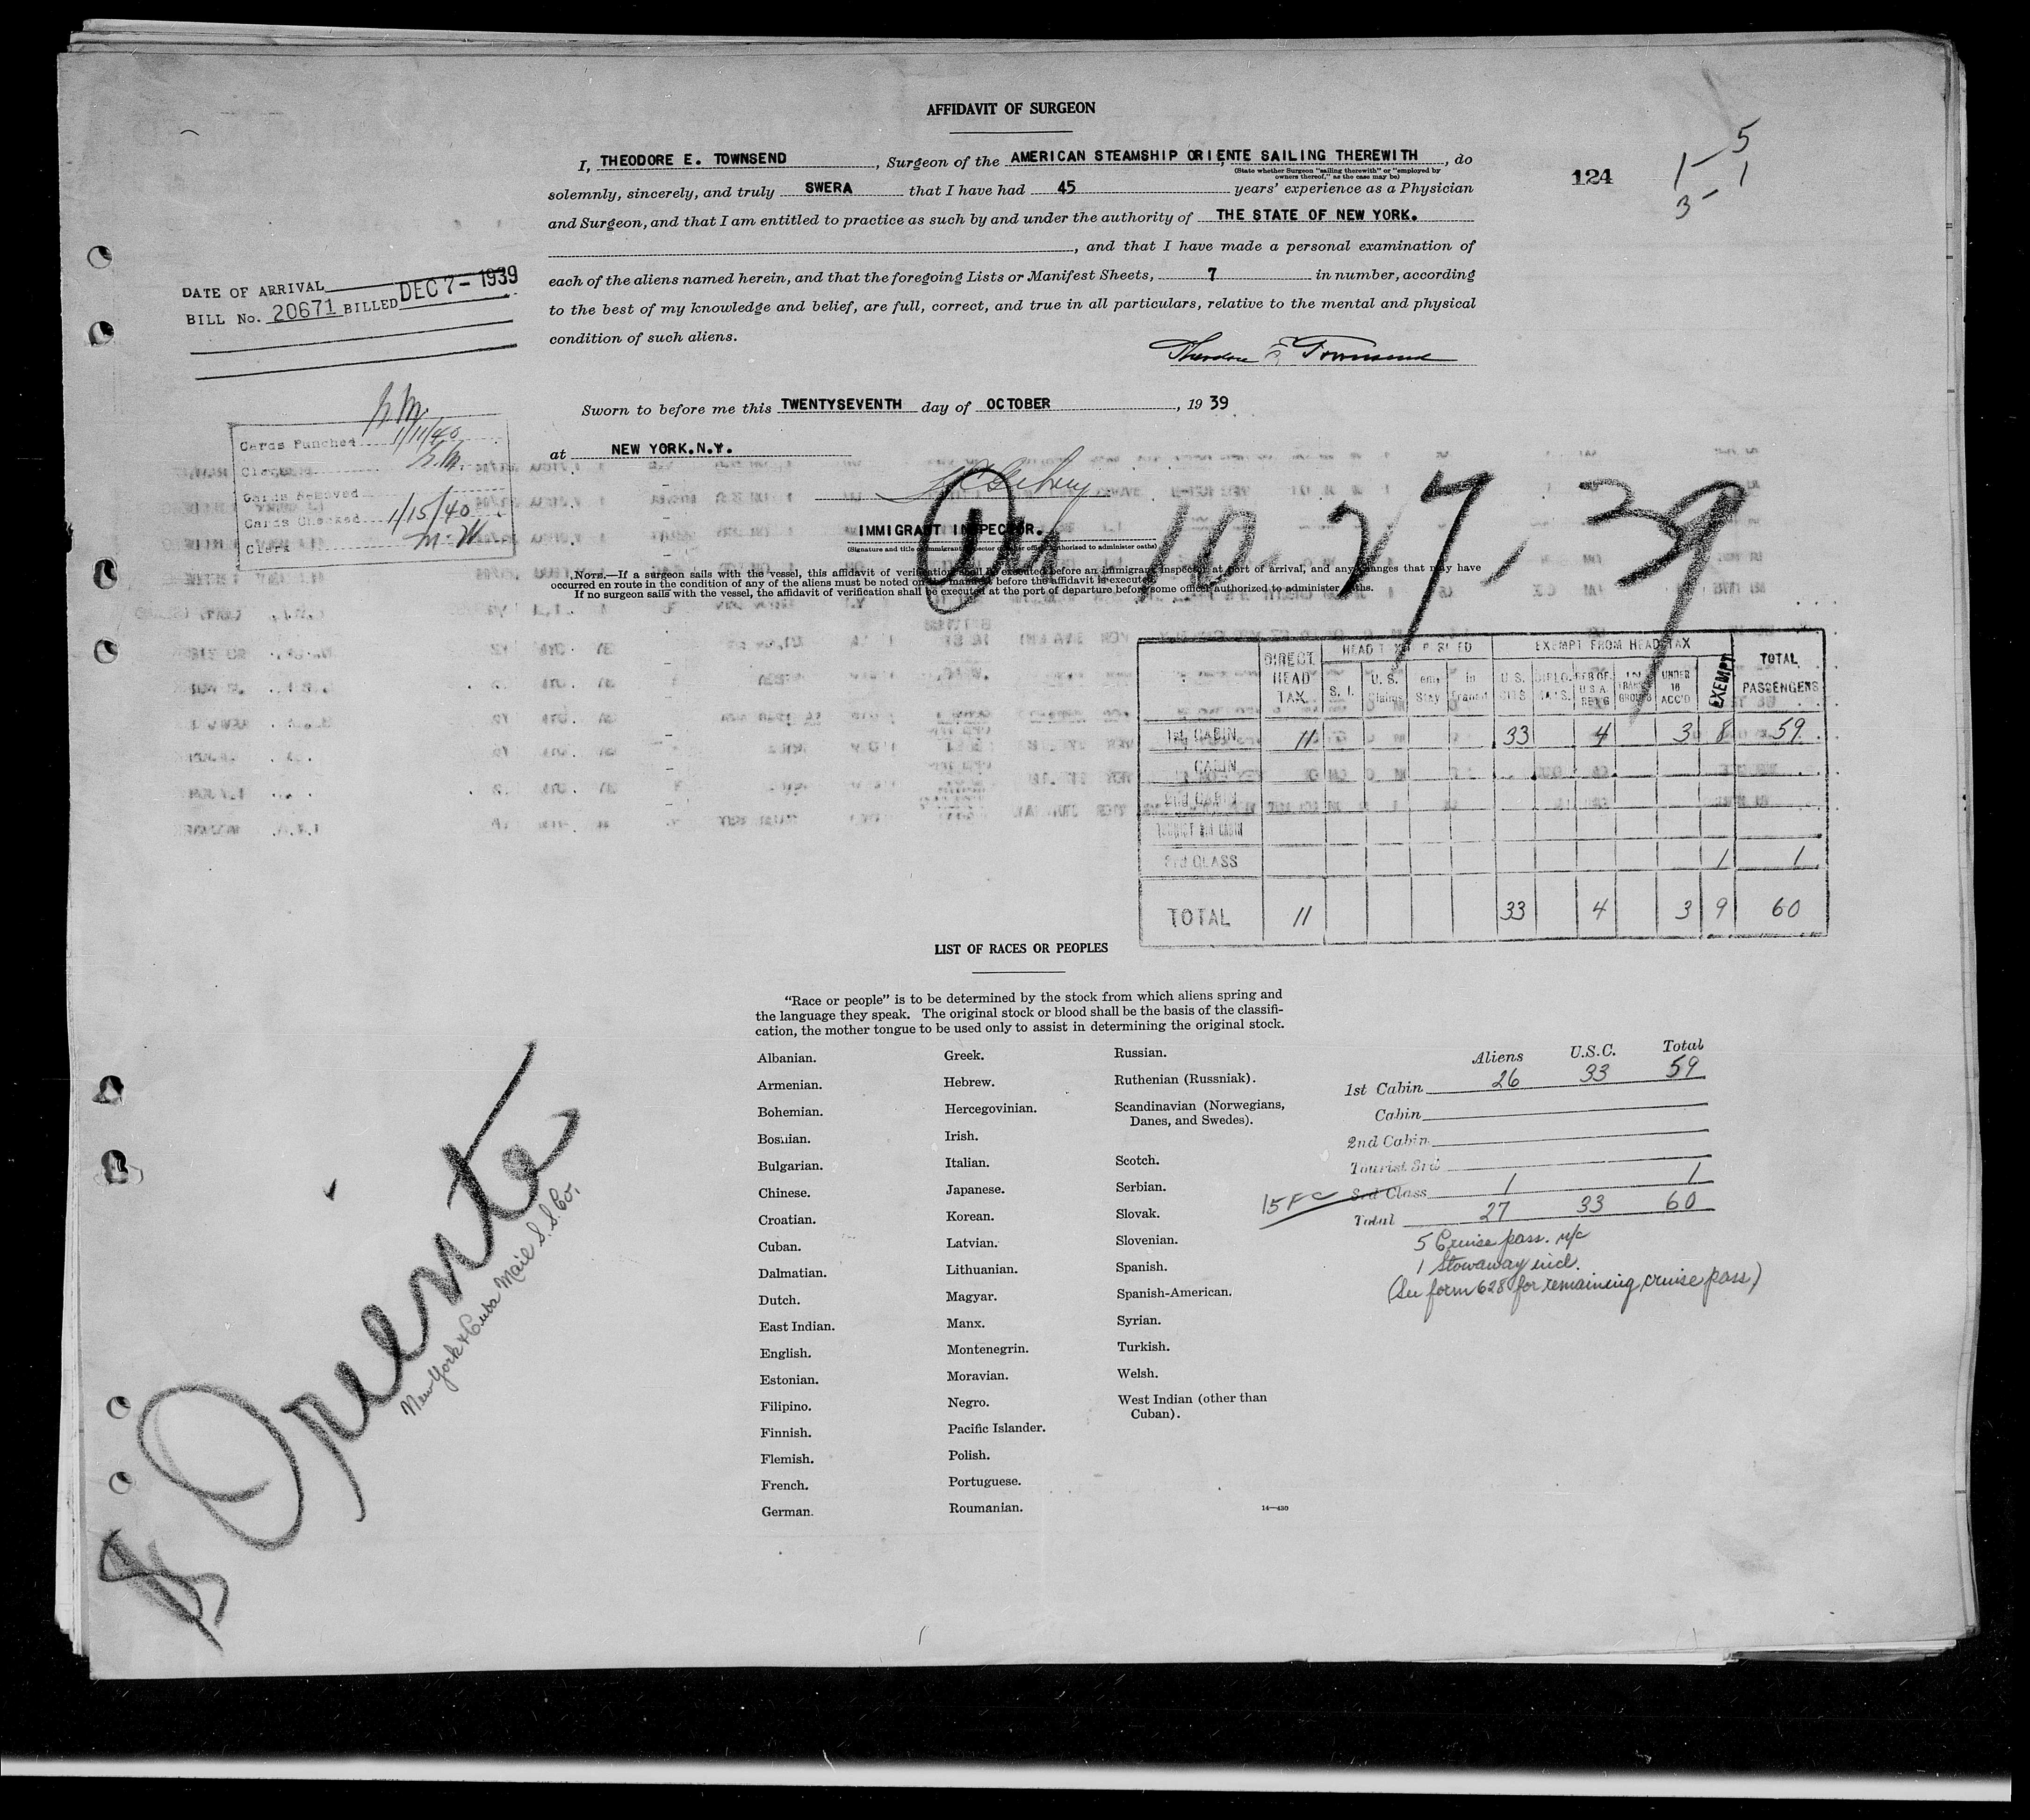 AFFIDAVIT OF SURGEON
I, THEODORE E. TOWNSEND, Surgeon of the AMERICAN STEAMSHIP ORIENTE SAILING THEREWITH, do
(State whether Surgeon "sailing therewith" or "employed by
owners thereof," as the case may be)
solemnly, sincerely, and truly SWERA that I have had 45 years' experience as a Physician
and Surgeon, and that I am entitled to practice as such by and under the authority of THE STATE OF NEW YORK.
, and that I have made a personal examination of
each of the aliens named herein, and that the foregoing Lists or Manifest Sheets, 7 in number, according
to the best of my knowledge and belief, are full, correct, and true in all particulars, relative to the mental and physical
condition of such aliens.
Theodore E Townsend
124
1- 5
3- 1
DATE OF ARRIVAL
BILL No. 20671 BILLED DEC 7- 1939
Sworn to before me this TWENTYSEVENTH day of OCTOBER, 1939.
at NEW YORK.N.Y.
IMMIGRANT INSPECTOR.
(Signature and title of immigrant inspector or other officer authorized to administer oaths)
Cards Punched 1/11/40
Clerk
Cards Removed
Cards Checked 1/15/40
Clerk
10-27, 39
NOTE.—If a surgeon sails with the vessel, this affidavit of verification shall be executed before an immigrant inspector at port of arrival, and any changes that may have
occurred en route in the condition of any of the aliens must be noted on the manifest before the affidavit is executed.
If no surgeon sails with the vessel, the affidavit of verification shall be executed at the port of departure before some officer authorized to administer oaths.
DIRECT HEAD TAX EXEMPT FROM HEAD TAX EXEMPT TOTAL PASSENGERS
S. I. U. S. Claims Stay U. S. CITS UNDER 16 ACC'D
1st CABIN 11 33 4 3 8 59
CABIN
2nd CABIN
TOURIST 3rd CABIN
3rd CLASS 1 1
TOTAL 11 33 4 3 9 60
LIST OF RACES OR PEOPLES
"Race or people" is to be determined by the stock from which aliens spring and
the language they speak. The original stock or blood shall be the basis of the classifi-
cation, the mother tongue to be used only to assist in determining the original stock.
Albanian.
Armenian.
Bohemian.
Bosnian.
Bulgarian.
Chinese.
Croatian.
Cuban.
Dalmatian.
Dutch.
East Indian.
English.
Estonian.
Filipino.
Finnish.
Flemish.
French.
German.
Greek.
Hebrew.
Hercegovinian.
Irish.
Italian.
Japanese.
Korean.
Latvian.
Lithuanian.
Magyar.
Manx.
Montenegrin.
Moravian.
Negro.
Pacific Islander.
Polish.
Portuguese.
Roumanian.
Russian.
Ruthenian (Russniak).
Scandinavian (Norwegians,
Danes, and Swedes).
Scotch.
Serbian.
Slovak.
Slovenian.
Spanish.
Spanish-American.
Syrian.
Turkish.
Welsh.
West Indian (other than
Cuban).
14—430
Aliens U.S.C. Total
1st Cabin 26 33 59
Cabin
2nd Cabin
Tourist 3rd
3rd Class 1 1
Total 27 33 60
5 Cruise pass. n/c
1 Stowaway incl.
(See form 628 for remaining cruise pass)
SS Oriente
New York & Cuba Mail S.S. Co.